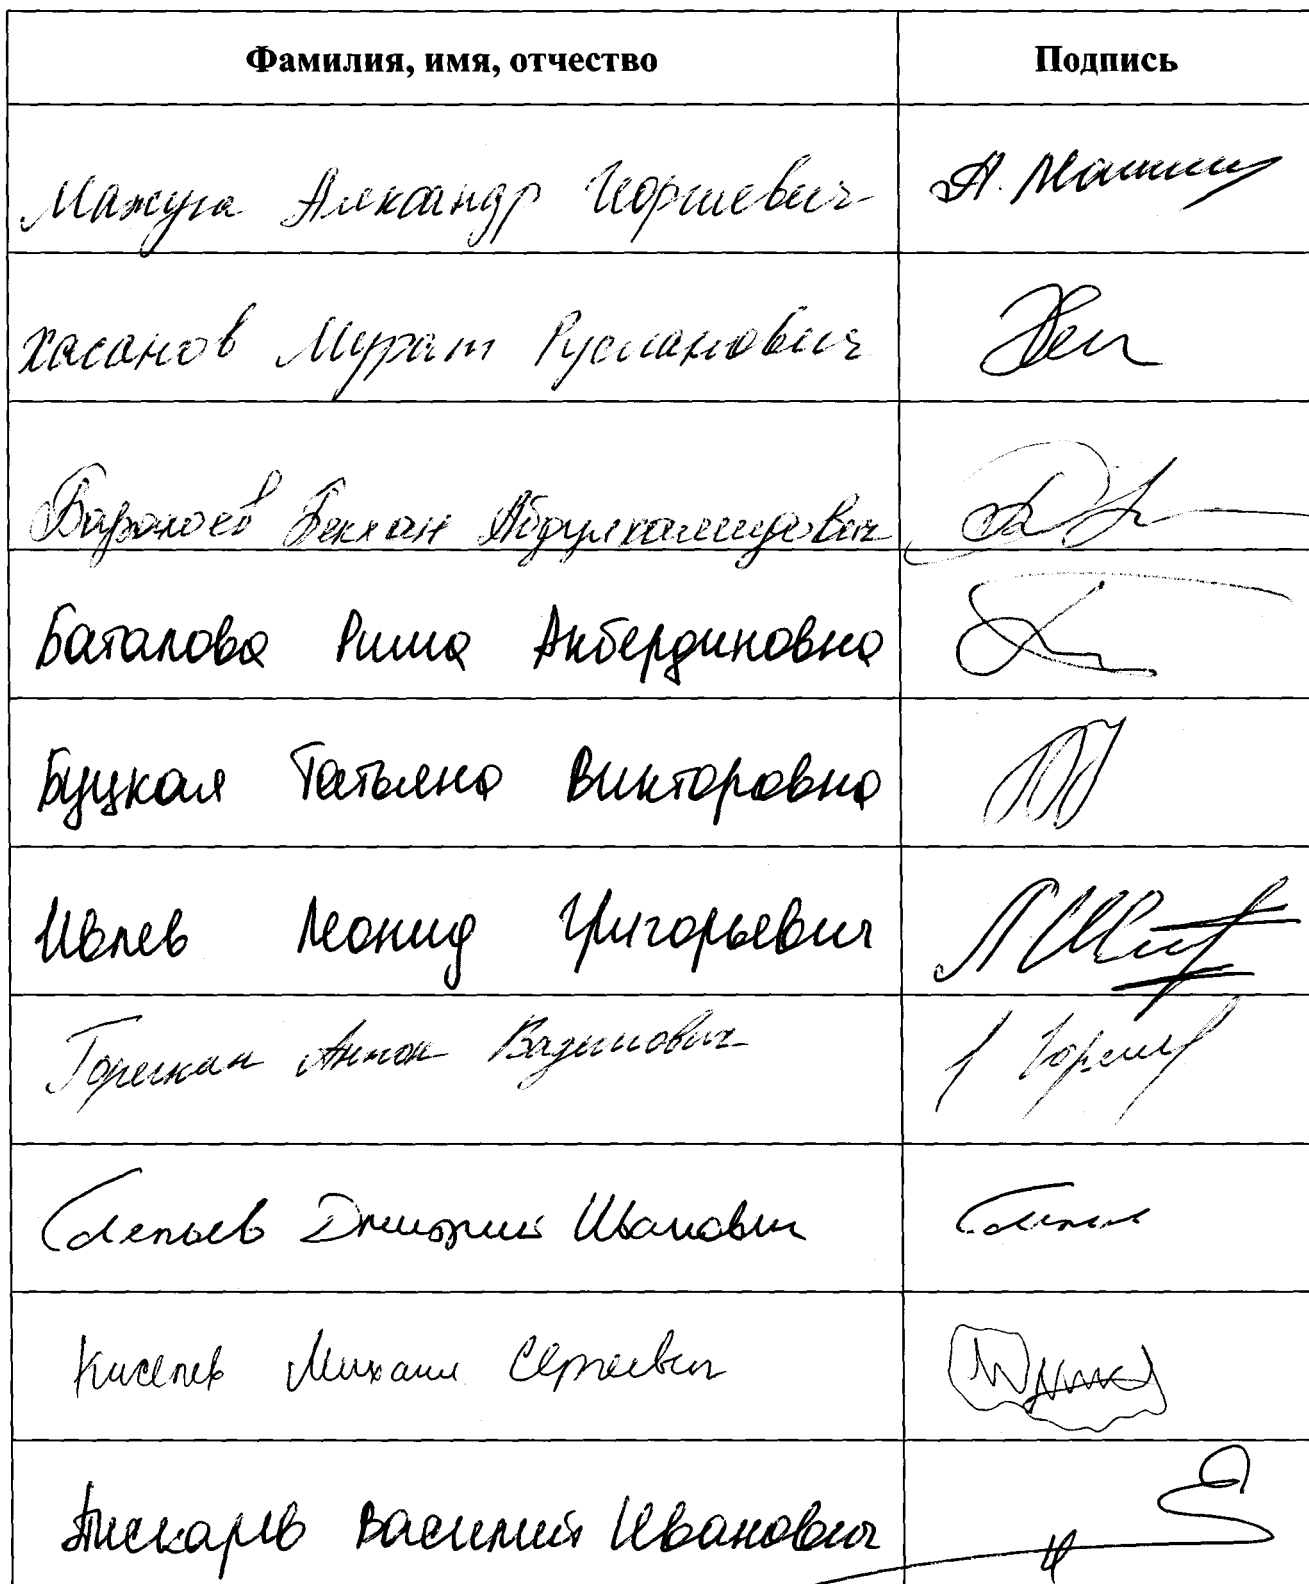 Фамилия, имя, отчество Подпись
Мажуга Александр Георгиевич А. Мажуга
Хасанов Мурат Русланович
Барахоев Бекхан Абдулхамидович
Баталова Рима Акбердиновна
Буцкая Татьяна Викторовна
Ивлев Леонид Григорьевич
Горелкин Антон Вадимович
Савельев Дмитрий Иванович
Киселев Михаил Сергеевич
Пискарев Василий Иванович